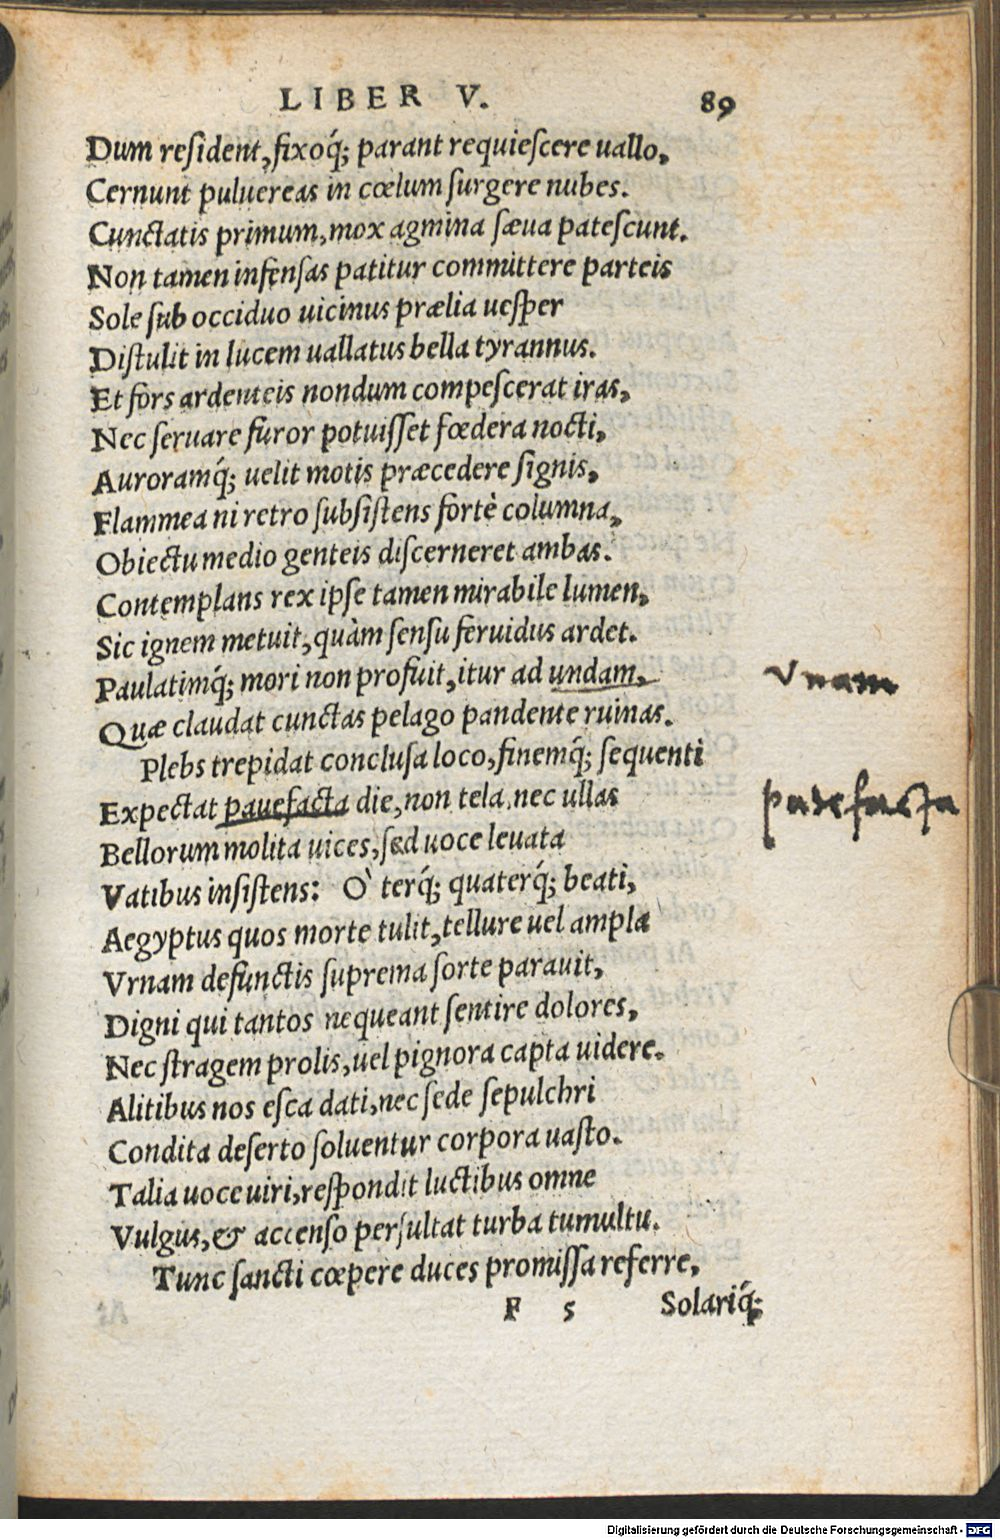 LIBER V. 89
Dum reſident, fixoq́; parant requieſcere uallo,
Cernunt puluereas in cœlum ſurgere nubes.
Cunctatis primum, mox agmina ſæua pateſcunt.
Non tamen infenſas patitur committere parteis
Sole ſub occiduo uicinus prælia ueſper
Diſtulit in lucem uallatus bella tyrannus.
Et fors ardenteis nondum compeſcerat iras,
Nec ſeruare furor potuiſſet fœdera nocti,
Auroramq́; uelit motis præcedere ſignis,
Flammea ni retro ſubſiſtens fortè columna,
Obiectu medio genteis diſcerneret ambas.
Contemplans rex ipſe tamen mirabile lumen,
Sic ignem metuit, quàm ſenſu feruidus ardet.
Paulatimq́; mori non profuit, itur ad undam,
Vnam
Quæ claudat cunctas pelago pandente ruinas.
Plebs trepidat concluſa loco, finemq́; ſequenti
Expectat pauefacta die, non tela, nec ullas
patefacta
Bellorum molita uices, ſed uoce leuata
Vatibus inſiſtens: O` terq́; quaterq́; beati,
Aegyptus quos morte tulit, tellure uel ampla
Vrnam defunctis ſuprema ſorte parauit,
Digni qui tantos nequeant ſentire dolores,
Nec ſtragem prolis, uel pignora capta uidere.
Alitibus nos eſca dati, nec ſede ſepulchri
Condita deſerto ſoluentur corpora uaſto.
Talia uoce uiri, reſpondit luctibus omne
Vulgus, & accenſo perſultat turba tumultu.
Tunc ſancti cœpere duces promiſſa referre,
F 5 Solariq́;
Digitalisierung gefördert durch die Deutsche Forschungsgemeinschaft - DFG